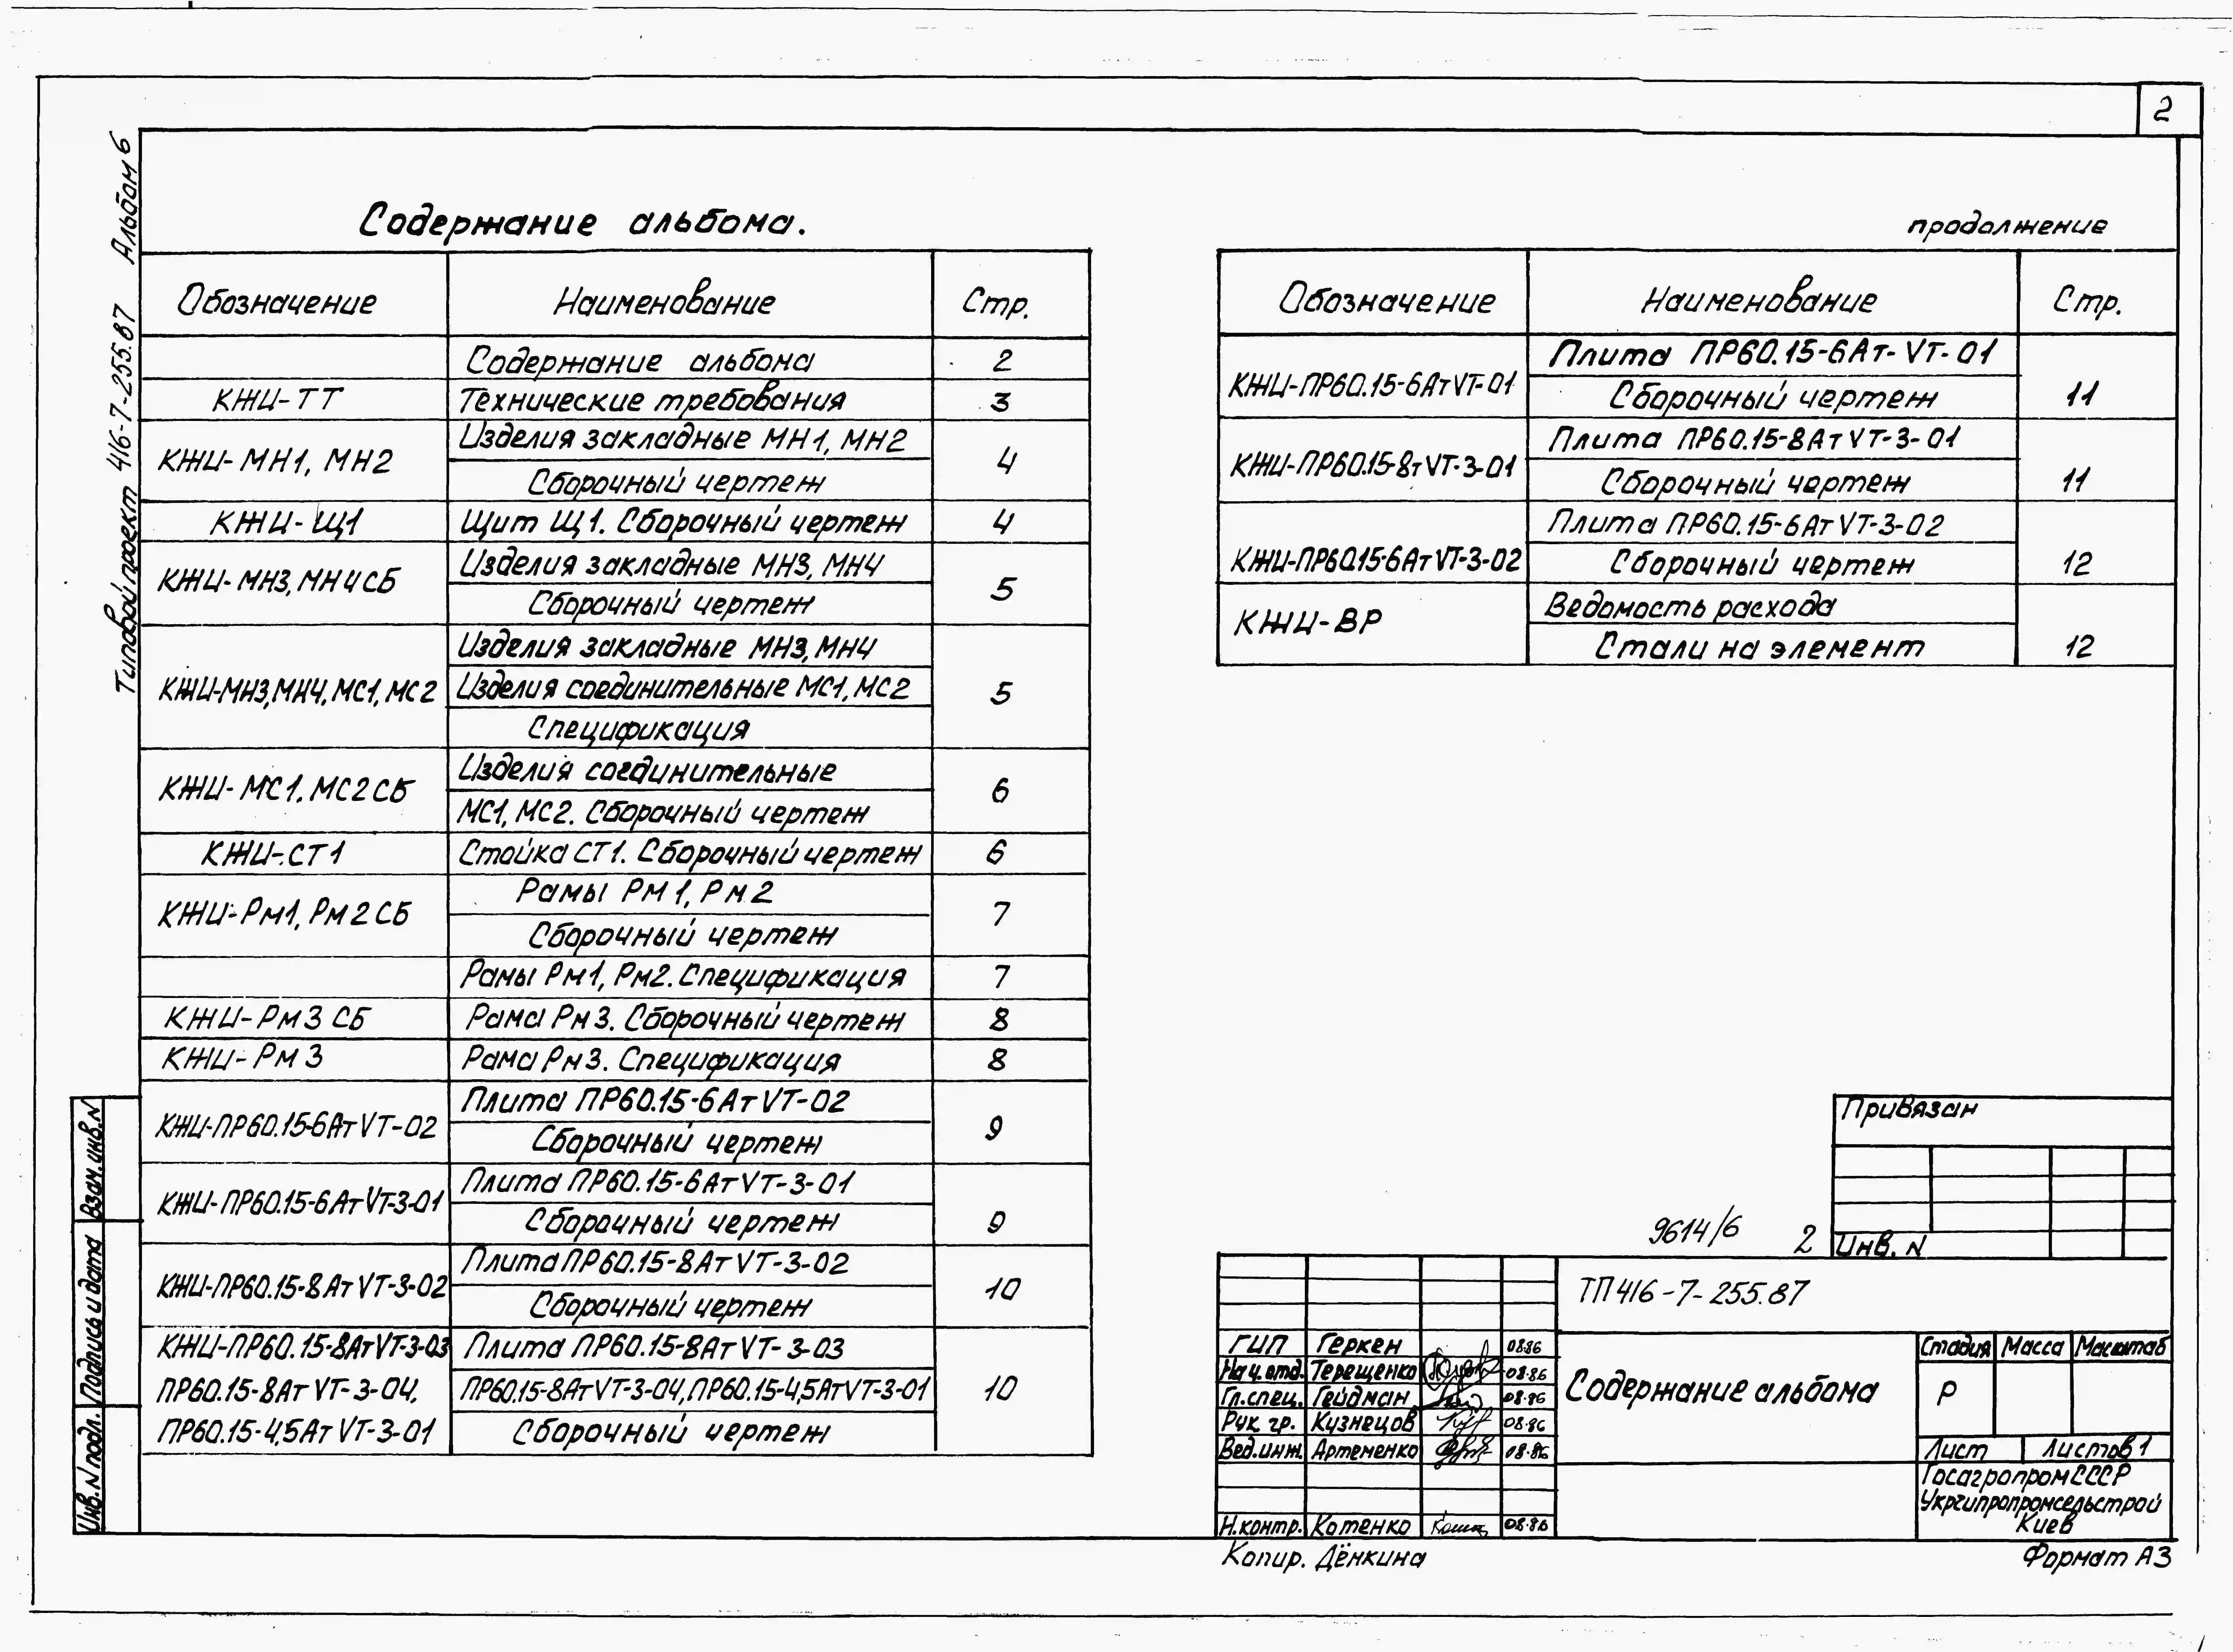 2
Типовой проект 416-7-255.87 Альбом 6
Содержание альбома.
Обозначение Наименование Стр.
Содержание альбома 2
КЖИ-ТТ Технические требования 3
КЖИ-МН1, МН2 Изделия закладные МН1, МН2
Сборочный чертеж 4
КЖИ-Щ1 Щит Щ1. Сборочный чертеж 4
КЖИ-МН3, МН4СБ Изделия закладные МН3, МН4
Сборочный чертеж 5
Изделия закладные МН3, МН4
КЖИ-МН3, МН4, МС1, МС2 Изделия соединительные МС1, МС2 5
Спецификация
КЖИ-МС1. МС2СБ Изделия соединительные
МС1, МС2. Сборочный чертеж 6
КЖИ-.СТ1 Стойка СТ1. Сборочный чертеж 6
КЖИ-Рм1, Рм2СБ Рамы Рм1, Рм2
Сборочный чертеж 7
Рамы Рм1, Рм2. Спецификация 7
КЖИ-Рм3 СБ Рама Рм3. Сборочный чертеж 8
КЖИ-Рм3 Рама Рм3. Спецификация 8
КЖИ-ПР60.15-6АтVТ-02 Плита ПР60.15-6АтVТ-02
Сборочный чертеж 9
КЖИ-ПР60.15-6АтVТ-3-01 Плита ПР60.15-6АтVТ-3-01
Сборочный чертеж 9
КЖИ-ПР60.15-8АтVТ-3-02 Плита ПР60.15-8АтVТ-3-02
Сборочный чертеж 10
КЖИ-ПР60.15-8АтVТ-3-03 Плита ПР60.15-8АтVТ-3-03
ПР60.15-8АтVТ-3-04, ПР60.15-8АтVТ-3-04, ПР60.15-4,5АтVТ-3-01 10
ПР60.15-4,5АтVТ-3-01 Сборочный чертеж
продолжение
Обозначение Наименование Стр.
КЖИ-ПР60.15-6АтVТ-01 Плита ПР60.15-6Ат-VТ-01
Сборочный чертеж 11
КЖИ-ПР60.15-8тVТ-3-01 Плита ПР60.15-8АтVТ-3-01
Сборочный чертеж 11
КЖИ-ПР60.15-6АтVТ-3-02 Плита ПР60.15-6АтVТ-3-02
Сборочный чертеж 12
КЖИ-ВР Ведомость расхода
Стали на элемент 12
Привязан
Инв. N
9614/6 2
ТП 416-7-255.87
ГИП Геркен 08.86
Нач.отд. Терещенко 08.86
Гл.спец. Гейдман 08.86
Рук. гр. Кузнецов 08.86
Вед.инж. Артеменко 08.86
Н.контр. Котенко 08.86
Содержание альбома
Стадия Масса Масштаб
Р
Лист Листов 1
Госагропром СССР
Укргипропромсельстрой
Киев
Взам.инв.N
Подпись и дата
Инв.N подл.
Копир. Дёнкина
Формат А3